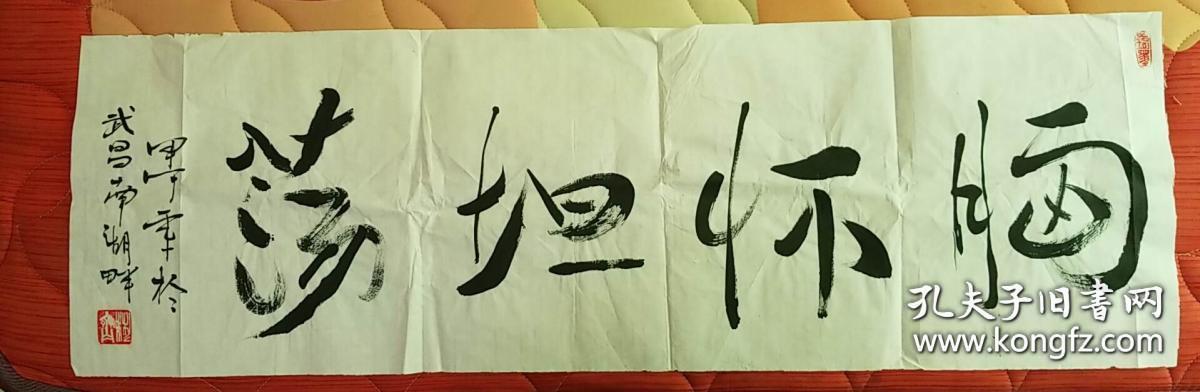 胸怀坦荡
甲午年於
武昌南湖畔
孔夫子旧书网
www.kongfz.com